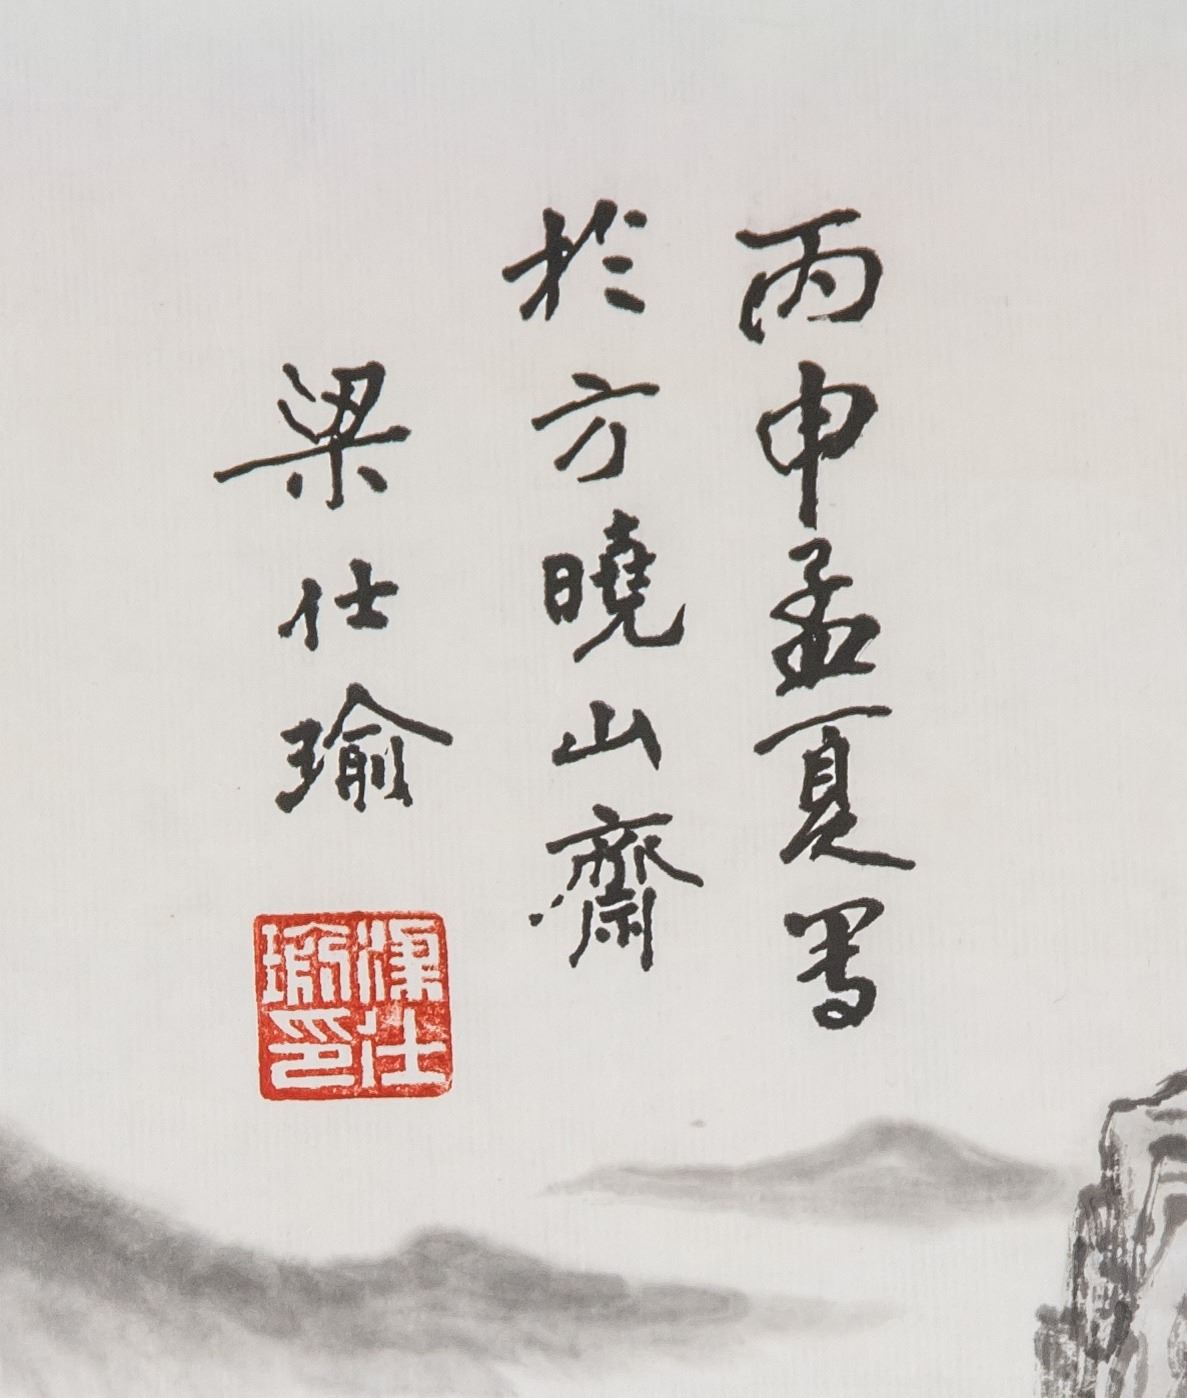 丙申孟夏写
於方曉山齋
梁仕瑜
梁仕
瑜印